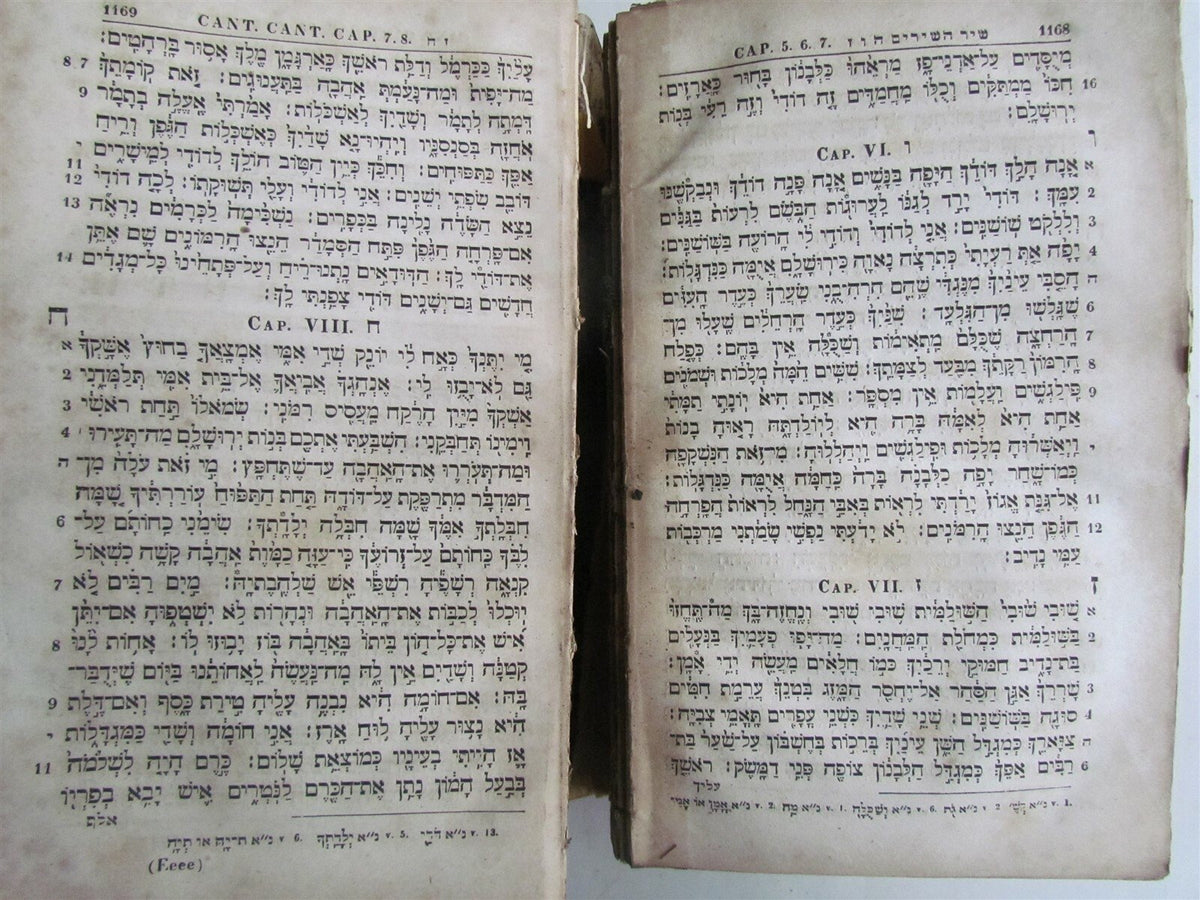 CAP. 5. 6. 7. שיר השירים ה ו ז 1168
מְיֻסָּדִים עַל־אַדְנֵי־פָז מַרְאֵהוּ כַּלְּבָנוֹן בָּחוּר כָּאֲרָזִים׃
16 חִכּוֹ מַמְתַקִּים וְכֻלּוֹ מַחֲמַדִּים זֶה דוֹדִי וְזֶה רֵעִי בְּנוֹת
יְרוּשָׁלִָם׃
CAP. VI. ו ו
א אָנָה הָלַךְ דּוֹדֵךְ הַיָּפָה בַּנָּשִׁים אָנָה פָּנָה דוֹדֵךְ וּנְבַקְשֶׁנּוּ
2 עִמָּךְ׃ דּוֹדִי יָרַד לְגַנּוֹ לַעֲרוּגוֹת הַבֹּשֶׂם לִרְעוֹת בַּגַּנִּים
3 וְלִלְקֹט שׁוֹשַׁנִּים׃ אֲנִי לְדוֹדִי וְדוֹדִי לִי הָרוֹעֶה בַּשּׁוֹשַׁנִּים׃
4 יָפָה אַתְּ רַעְיָתִי כְּתִרְצָה נָאוָה כִּירוּשָׁלִָם אֲיֻמָּה כַּנִּדְגָּלוֹת׃
ה הָסֵבִּי עֵינַיִךְ מִנֶּגְדִּי שֶׁהֵם הִרְהִיבֻנִי שַׂעְרֵךְ כְּעֵדֶר הָעִזִּים
6 שֶׁגָּלְשׁוּ מִן־הַגִּלְעָד׃ שִׁנַּיִךְ כְּעֵדֶר הָרְחֵלִים שֶׁעָלוּ מִן־
7 הָרַחְצָה שֶׁכֻּלָּם מַתְאִימוֹת וְשַׁכֻּלָה אֵין בָּהֶם׃ כְּפֶלַח
8 הָרִמּוֹן רַקָּתֵךְ מִבַּעַד לְצַמָּתֵךְ׃ שִׁשִּׁים הֵמָּה מְלָכוֹת וּשְׁמֹנִים
9 פִּילַגְשִׁים וַעֲלָמוֹת אֵין מִסְפָּר׃ אַחַת הִיא יוֹנָתִי תַמָּתִי
אַחַת הִיא לְאִמָּהּ בָּרָה הִיא לְיוֹלַדְתָּהּ רָאוּהָ בָנוֹת
י וַיְאַשְּׁרוּהָ מְלָכוֹת וּפִילַגְשִׁים וַיְהַלְלוּהָ׃ מִי־זֹאת הַנִּשְׁקָפָה
כְּמוֹ־שָׁחַר יָפָה כַלְּבָנָה בָּרָה כַּחַמָּה אֲיֻמָּה כַּנִּדְגָּלוֹת׃
11 אֶל־גִּנַּת אֱגוֹז יָרַדְתִּי לִרְאוֹת בְּאִבֵּי הַנָּחַל לִרְאוֹת הֲפָרְחָה
12 הַגֶּפֶן הֵנֵצוּ הָרִמֹּנִים׃ לֹא יָדַעְתִּי נַפְשִׁי שָׂמַתְנִי מַרְכְּבוֹת
עַמִּי נָדִיב׃
CAP. VII. ז ז
א שׁוּבִי שׁוּבִי הַשּׁוּלַמִּית שׁוּבִי שׁוּבִי וְנֶחֱזֶה־בָּךְ מַה־תֶּחֱזוּ
2 בַּשּׁוּלַמִּית כִּמְחֹלַת הַמַּחֲנָיִם׃ מַה־יָּפוּ פְעָמַיִךְ בַּנְּעָלִים
בַּת־נָדִיב חַמּוּקֵי יְרֵכַיִךְ כְּמוֹ חֲלָאִים מַעֲשֵׂה יְדֵי אָמָּן׃
3 שָׁרְרֵךְ אַגַּן הַסַּהַר אַל־יֶחְסַר הַמָּזֶג בִּטְנֵךְ עֲרֵמַת חִטִּים
4 סוּגָה בַּשּׁוֹשַׁנִּים׃ שְׁנֵי שָׁדַיִךְ כִּשְׁנֵי עֳפָרִים תָּאֳמֵי צְבִיָּה׃
ה צַוָּארֵךְ כְּמִגְדַּל הַשֵּׁן עֵינַיִךְ בְּרֵכוֹת בְּחֶשְׁבּוֹן עַל־שַׁעַר בַּת־
6 רַבִּים אַפֵּךְ כְּמִגְדַּל הַלְּבָנוֹן צוֹפֶה פְּנֵי דַמָּשֶׂק׃ רֹאשֵׁךְ
עליך
1169 CANT. CANT. CAP. 7. 8. ז ח
עָלַיִךְ כַּכַּרְמֶל וְדַלַּת רֹאשֵׁךְ כָּאַרְגָּמָן מֶלֶךְ אָסוּר בָּרְהָטִים׃
7 8 מַה־יָּפִית וּמַה־נָּעַמְתְּ אַהֲבָה בַּתַּעֲנוּגִים׃ זֹאת קוֹמָתֵךְ
9 דָּמְתָה לְתָמָר וְשָׁדַיִךְ לְאַשְׁכֹּלוֹת׃ אָמַרְתִּי אֶעֱלֶה בְתָמָר
אֹחֲזָה בְּסַנְסִנָּיו וְיִהְיוּ־נָא שָׁדַיִךְ כְּאֶשְׁכְּלוֹת הַגֶּפֶן וְרֵיחַ
י אַפֵּךְ כַּתַּפּוּחִים׃ וְחִכֵּךְ כְּיֵין הַטּוֹב הוֹלֵךְ לְדוֹדִי לְמֵישָׁרִים
11 12 דּוֹבֵב שִׂפְתֵי יְשֵׁנִים׃ אֲנִי לְדוֹדִי וְעָלַי תְּשׁוּקָתוֹ׃ לְכָה דוֹדִי
13 נֵצֵא הַשָּׂדֶה נָלִינָה בַּכְּפָרִים׃ נַשְׁכִּימָה לַכְּרָמִים נִרְאֶה
אִם־פָּרְחָה הַגֶּפֶן פִּתַּח הַסְּמָדַר הֵנֵצוּ הָרִמּוֹנִים שָׁם אֶתֵּן
14 אֶת־דּוֹדַי לָךְ׃ הַדּוּדָאִים נָתְנוּ־רֵיחַ וְעַל־פְּתָחֵינוּ כָּל־מְגָדִים
חֲדָשִׁים גַּם־יְשָׁנִים דּוֹדִי צָפַנְתִּי לָךְ׃
CAP. VIII. ח ח
א מִי יִתֶּנְךָ כְּאָח לִי יוֹנֵק שְׁדֵי אִמִּי אֶמְצָאֲךָ בַחוּץ אֶשָּׁקְךָ
2 גַּם לֹא־יָבֻזוּ לִי׃ אֶנְהָגֲךָ אֲבִיאֲךָ אֶל־בֵּית אִמִּי תְּלַמְּדֵנִי
3 אַשְׁקְךָ מִיַּיִן הָרֶקַח מֵעֲסִיס רִמֹּנִי׃ שְׂמֹאלוֹ תַּחַת רֹאשִׁי
4 וִימִינוֹ תְּחַבְּקֵנִי׃ הִשְׁבַּעְתִּי אֶתְכֶם בְּנוֹת יְרוּשָׁלִָם מַה־תָּעִירוּ
ה וּמַה־תְּעֹרְרוּ אֶת־הָאַהֲבָה עַד־שֶׁתֶּחְפָּץ׃ מִי זֹאת עֹלָה מִן־
הַמִּדְבָּר מִתְרַפֶּקֶת עַל־דּוֹדָהּ תַּחַת הַתַּפּוּחַ עוֹרַרְתִּיךָ שָׁמָּה
6 חִבְּלַתְךָ אִמֶּךָ שָׁמָּה חִבְּלָה יְלָדַתְךָ׃ שִׂימֵנִי כַחוֹתָם עַל־
לִבֶּךָ כַּחוֹתָם עַל־זְרוֹעֶךָ כִּי־עַזָּה כַמָּוֶת אַהֲבָה קָשָׁה כִשְׁאוֹל
7 קִנְאָה רְשָׁפֶיהָ רִשְׁפֵּי אֵשׁ שַׁלְהֶבֶתְיָה׃ מַיִם רַבִּים לֹא
יוּכְלוּ לְכַבּוֹת אֶת־הָאַהֲבָה וּנְהָרוֹת לֹא יִשְׁטְפוּהָ אִם־יִתֵּן
8 אִישׁ אֶת־כָּל־הוֹן בֵּיתוֹ בָּאַהֲבָה בּוֹז יָבוּזוּ לוֹ׃ אָחוֹת לָנוּ
קְטַנָּה וְשָׁדַיִם אֵין לָהּ מַה־נַּעֲשֶׂה לַאֲחוֹתֵנוּ בַּיּוֹם שֶׁיְּדֻבַּר־
9 בָּהּ׃ אִם־חוֹמָה הִיא נִבְנֶה עָלֶיהָ טִירַת כָּסֶף וְאִם־דֶּלֶת
י הִיא נָצוּר עָלֶיהָ לוּחַ אָרֶז׃ אֲנִי חוֹמָה וְשָׁדַי כַּמִּגְדָּלוֹת
11 אָז הָיִיתִי בְעֵינָיו כְּמוֹצְאֵת שָׁלוֹם׃ כֶּרֶם הָיָה לִשְׁלֹמֹה
בְּבַעַל הָמוֹן נָתַן אֶת־הַכֶּרֶם לַנֹּטְרִים אִישׁ יָבִא בְּפִרְיוֹ
אלף
v. 13. נ״א דֹּדַי v. 5. נ״א יְלָדָתְךָ v. 6 נ״א
(Eeee)